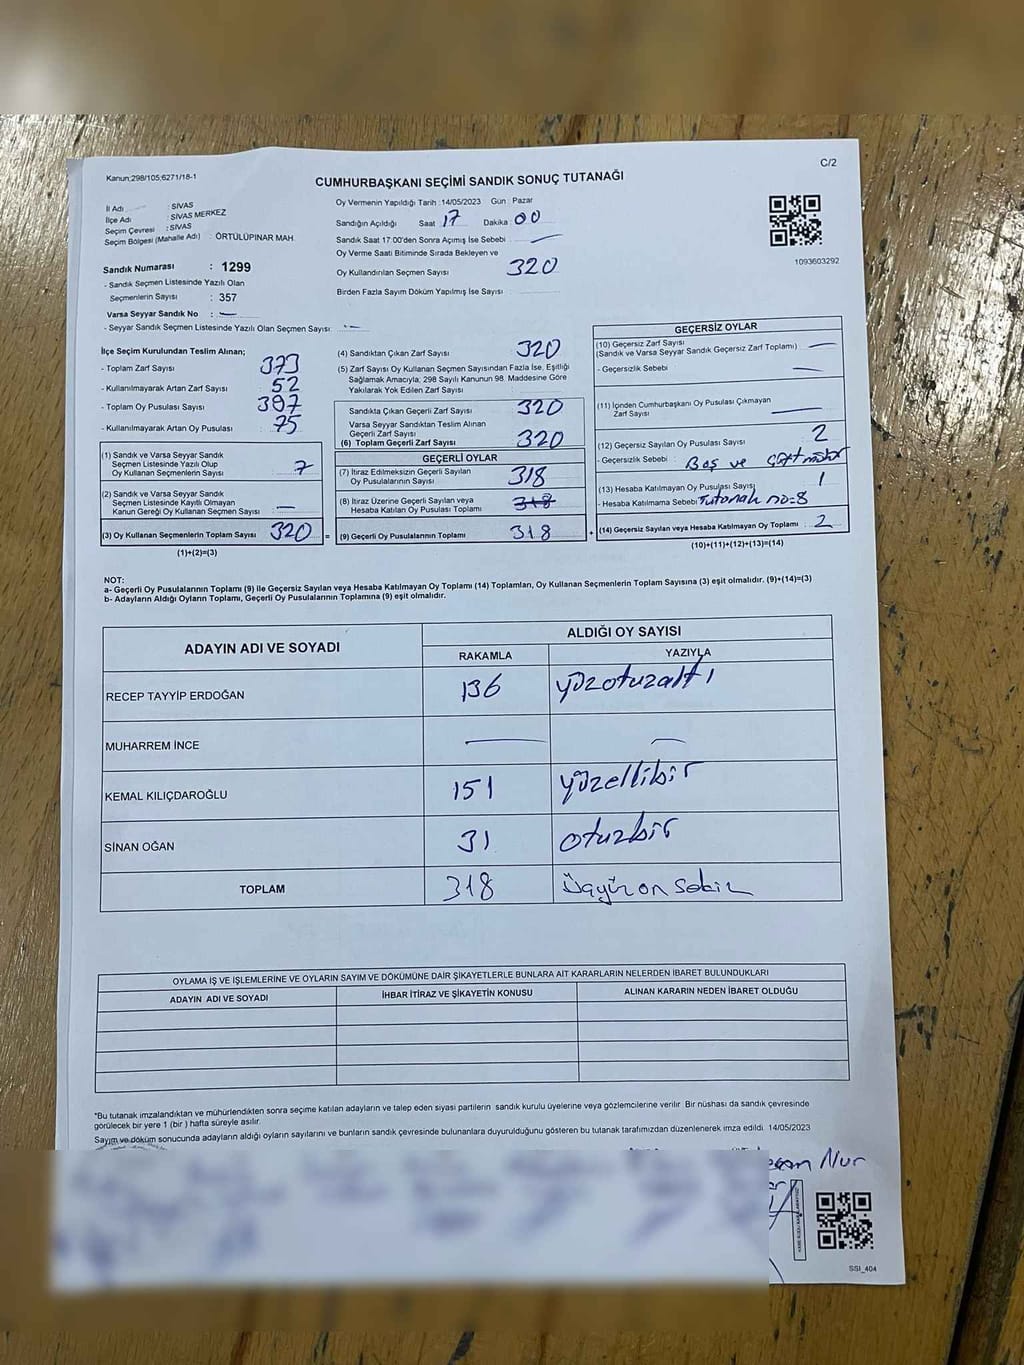 Kanun;298/105;6271/18-1
C/2
CUMHURBAŞKANI SEÇİMİ SANDIK SONUÇ TUTANAĞI
İl Adı : SİVAS
İlçe Adı : SİVAS MERKEZ
Seçim Çevresi : SİVAS
Seçim Bölgesi (Mahalle Adı) : ÖRTÜLÜPINAR MAH.
Sandık Numarası : 1299
- Sandık Seçmen Listesinde Yazılı Olan
Seçmenlerin Sayısı : 357
Varsa Seyyar Sandık No : —
- Seyyar Sandık Seçmen Listesinde Yazılı Olan Seçmen Sayısı: —
Oy Vermenin Yapıldığı Tarih :14/05/2023 Gün : Pazar
Sandığın Açıldığı Saat 17 Dakika : 00
Sandık Saat 17:00'den Sonra Açımış İse Sebebi —
Oy Verme Saati Bitiminde Sırada Bekleyen ve
Oy Kullandırılan Seçmen Sayısı 320
Birden Fazla Sayım Döküm Yapılmış İse Sayısı :
1093603292
İlçe Seçim Kurulundan Teslim Alınan;
- Toplam Zarf Sayısı : 373
- Kullanılmayarak Artan Zarf Sayısı : 52
- Toplam Oy Pusulası Sayısı : 397
- Kullanılmayarak Artan Oy Pusulası : 75
(1) Sandık ve Varsa Seyyar Sandık
Seçmen Listesinde Yazılı Olup
Oy Kullanan Seçmenlerin Sayısı : 7
(2) Sandık ve Varsa Seyyar Sandık
Seçmen Listesinde Kayıtlı Olmayan
Kanun Gereği Oy Kullanan Seçmen Sayısı : —
(3) Oy Kullanan Seçmenlerin Toplam Sayısı 320 =
(1)+(2)=(3)
(4) Sandıktan Çıkan Zarf Sayısı 320
(5) Zarf Sayısı Oy Kullanan Seçmen Sayısından Fazla İse, Eşitliği
Sağlamak Amacıyla; 298 Sayılı Kanunun 98. Maddesine Göre
Yakılarak Yok Edilen Zarf Sayısı
Sandıkta Çıkan Geçerli Zarf Sayısı 320
Varsa Seyyar Sandıktan Teslim Alınan
Geçerli Zarf Sayısı
(6) Toplam Geçerli Zarf Sayısı 320
GEÇERLİ OYLAR
(7) İtiraz Edilmeksizin Geçerli Sayılan
Oy Pusulalarının Sayısı 318
(8) İtiraz Üzerine Geçerli Sayılan veya
Hesaba Katılan Oy Pusulası Toplamı 318
(9) Geçerli Oy Pusulalarının Toplamı 318 +
GEÇERSİZ OYLAR
(10) Geçersiz Zarf Sayısı
(Sandık ve Varsa Seyyar Sandık Geçersiz Zarf Toplamı) —
- Geçersizlik Sebebi : —
(11) İçinden Cumhurbaşkanı Oy Pusulası Çıkmayan
Zarf Sayısı —
(12) Geçersiz Sayılan Oy Pusulası Sayısı 2
- Geçersizlik Sebebi : Boş ve Çift mühür
(13) Hesaba Katılmayan Oy Pusulası Sayısı 1
- Hesaba Katılmama Sebebi Tutanak no=8
(14) Geçersiz Sayılan veya Hesaba Katılmayan Oy Toplamı 2
(10)+(11)+(12)+(13)=(14)
NOT:
a- Geçerli Oy Pusulalarının Toplamı (9) ile Geçersiz Sayılan veya Hesaba Katılmayan Oy Toplamı (14) Toplamları, Oy Kullanan Seçmenlerin Toplam Sayısına (3) eşit olmalıdır. (9)+(14)=(3)
b- Adayların Aldığı Oyların Toplamı, Geçerli Oy Pusulalarının Toplamına (9) eşit olmalıdır.
ADAYIN ADI VE SOYADI
ALDIĞI OY SAYISI
RAKAMLA YAZIYLA
RECEP TAYYİP ERDOĞAN 136 yüzotuzaltı
MUHARREM İNCE — —
KEMAL KILIÇDAROĞLU 151 yüzellibir
SİNAN OĞAN 31 otuzbir
TOPLAM 318 Üçyüz on sekiz
OYLAMA İŞ VE İŞLEMLERİNE VE OYLARIN SAYIM VE DÖKÜMÜNE DAİR ŞİKAYETLERLE BUNLARA AİT KARARLARIN NELERDEN İBARET BULUNDUKLARI
ADAYIN ADI VE SOYADI İHBAR İTİRAZ VE ŞİKAYETİN KONUSU ALINAN KARARIN NEDEN İBARET OLDUĞU
*Bu tutanak imzalandıktan ve mühürlendikten sonra seçime katılan adayların ve talep eden siyasi partilerin sandık kurulu üyelerine veya gözlemcilerine verilir. Bir nüshası da sandık çevresinde
görülecek bir yere 1 (bir ) hafta süreyle asılır.
Sayım ve döküm sonucunda adayların aldığı oyların sayılarını ve bunların sandık çevresinde bulunanlara duyurulduğunu gösteren bu tutanak tarafımızdan düzenlenerek imza edildi. 14/05/2023
Nur
SSI_404